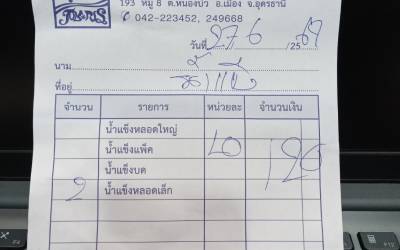 193 หมู่ 8 ต.หนองบัว อ.เมือง จ.อุดรธานี
✆ 042-223452, 249668
วันที่ 27 6 / 25 69
นาม
ที่อยู่
จำนวน รายการ หน่วยละ จำนวนเงิน
น้ำแข็งหลอดใหญ่
น้ำแข็งแพ็ค 40 120
น้ำแข็งบด
น้ำแข็งหลอดเล็ก